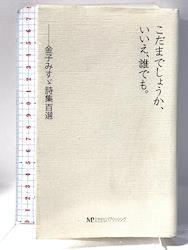 こだまでしょうか、
いいえ、誰でも。
――金子みすゞ詩集百選